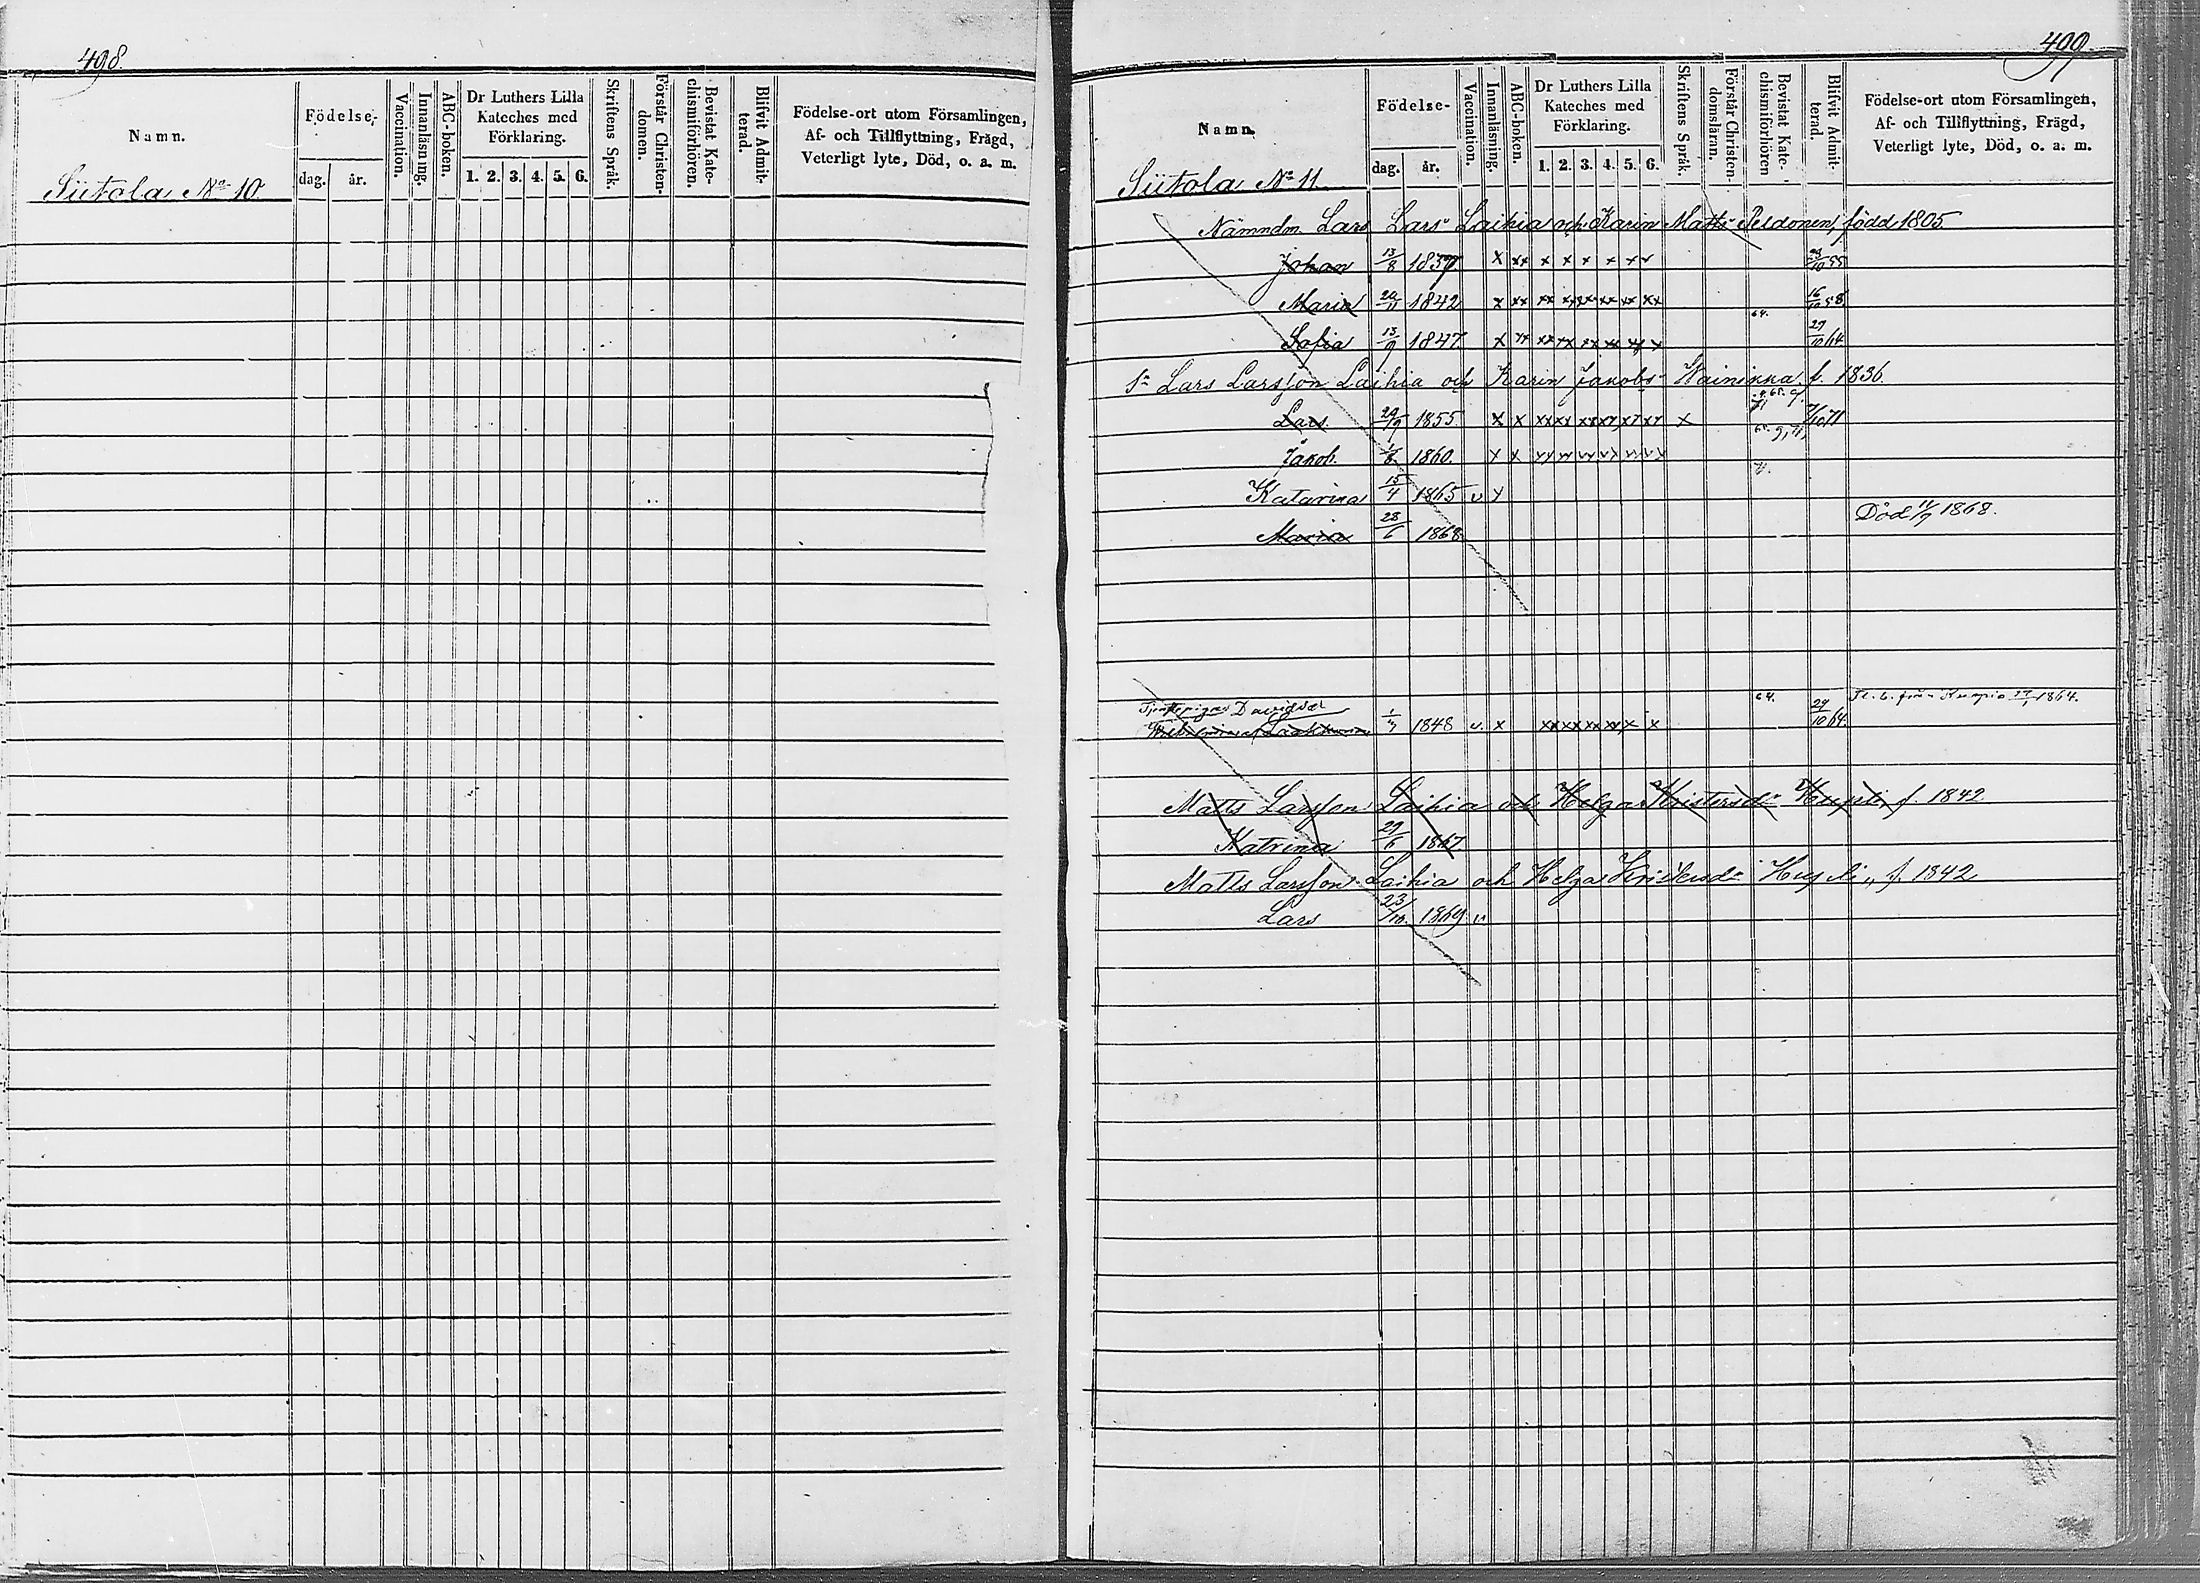 498.
Namn.
Födelse-
dag. år.
Vaccination.
Innanläsning.
ABC-boken.
Dr Luthers Lilla
Kateches med
Förklaring.
1. 2. 3. 4. 5. 6.
Skriftens Språk.
Förstår Christen-
domen.
Bevistat Kate-
chismiförhören.
Blifvit Admit-
terad.
Födelse-ort utom Församlingen,
Af- och Tillflyttning, Frägd,
Veterligt lyte, Död, o. a. m.
Siitola No 10.
499.
Namn.
Födelse-
dag. år.
Vaccination.
Innanläsning.
ABC-boken.
Dr Luthers Lilla
Kateches med
Förklaring.
1. 2. 3. 4. 5. 6.
Skriftens Språk.
Förstår Christen-
domsläran.
Bevistat Kate-
chismiförhören
Blifvit Admit-
terad.
Födelse-ort utom Församlingen,
Af- och Tillflyttning, Frägd,
Veterligt lyte, Död, o. a. m.
Siitola No 11
Nämndm. Lars Lars Laihia och Karin Matts Peldonen, född 1805.
Johan 13/8 1837 x xx x x x x x x 55
Maria 1842 x xx xx xx xx xx xx xx 16/10 58
Sofia 13/9 1847 x xx xx xx xx xx xx x 64. 29/10 64
Sn Lars Larsson Laihia och Karin Jakobs f. 1836.
Lars. 1855 x x xx xx xx xx xx xx x 71
Jakob. 1860
Katarina 15/4 1865 v
Maria 28/6 1868 Död 11/9 1868.
1848 v. x xx xx xx xx x x 64. 29/10 64. 1864.
Matts Larsson Laihia och Helga f. 1842
Katrina 29/6 1867
Matts Larsson Laihia och Helga f. 1842
Lars 23/10 1869 v